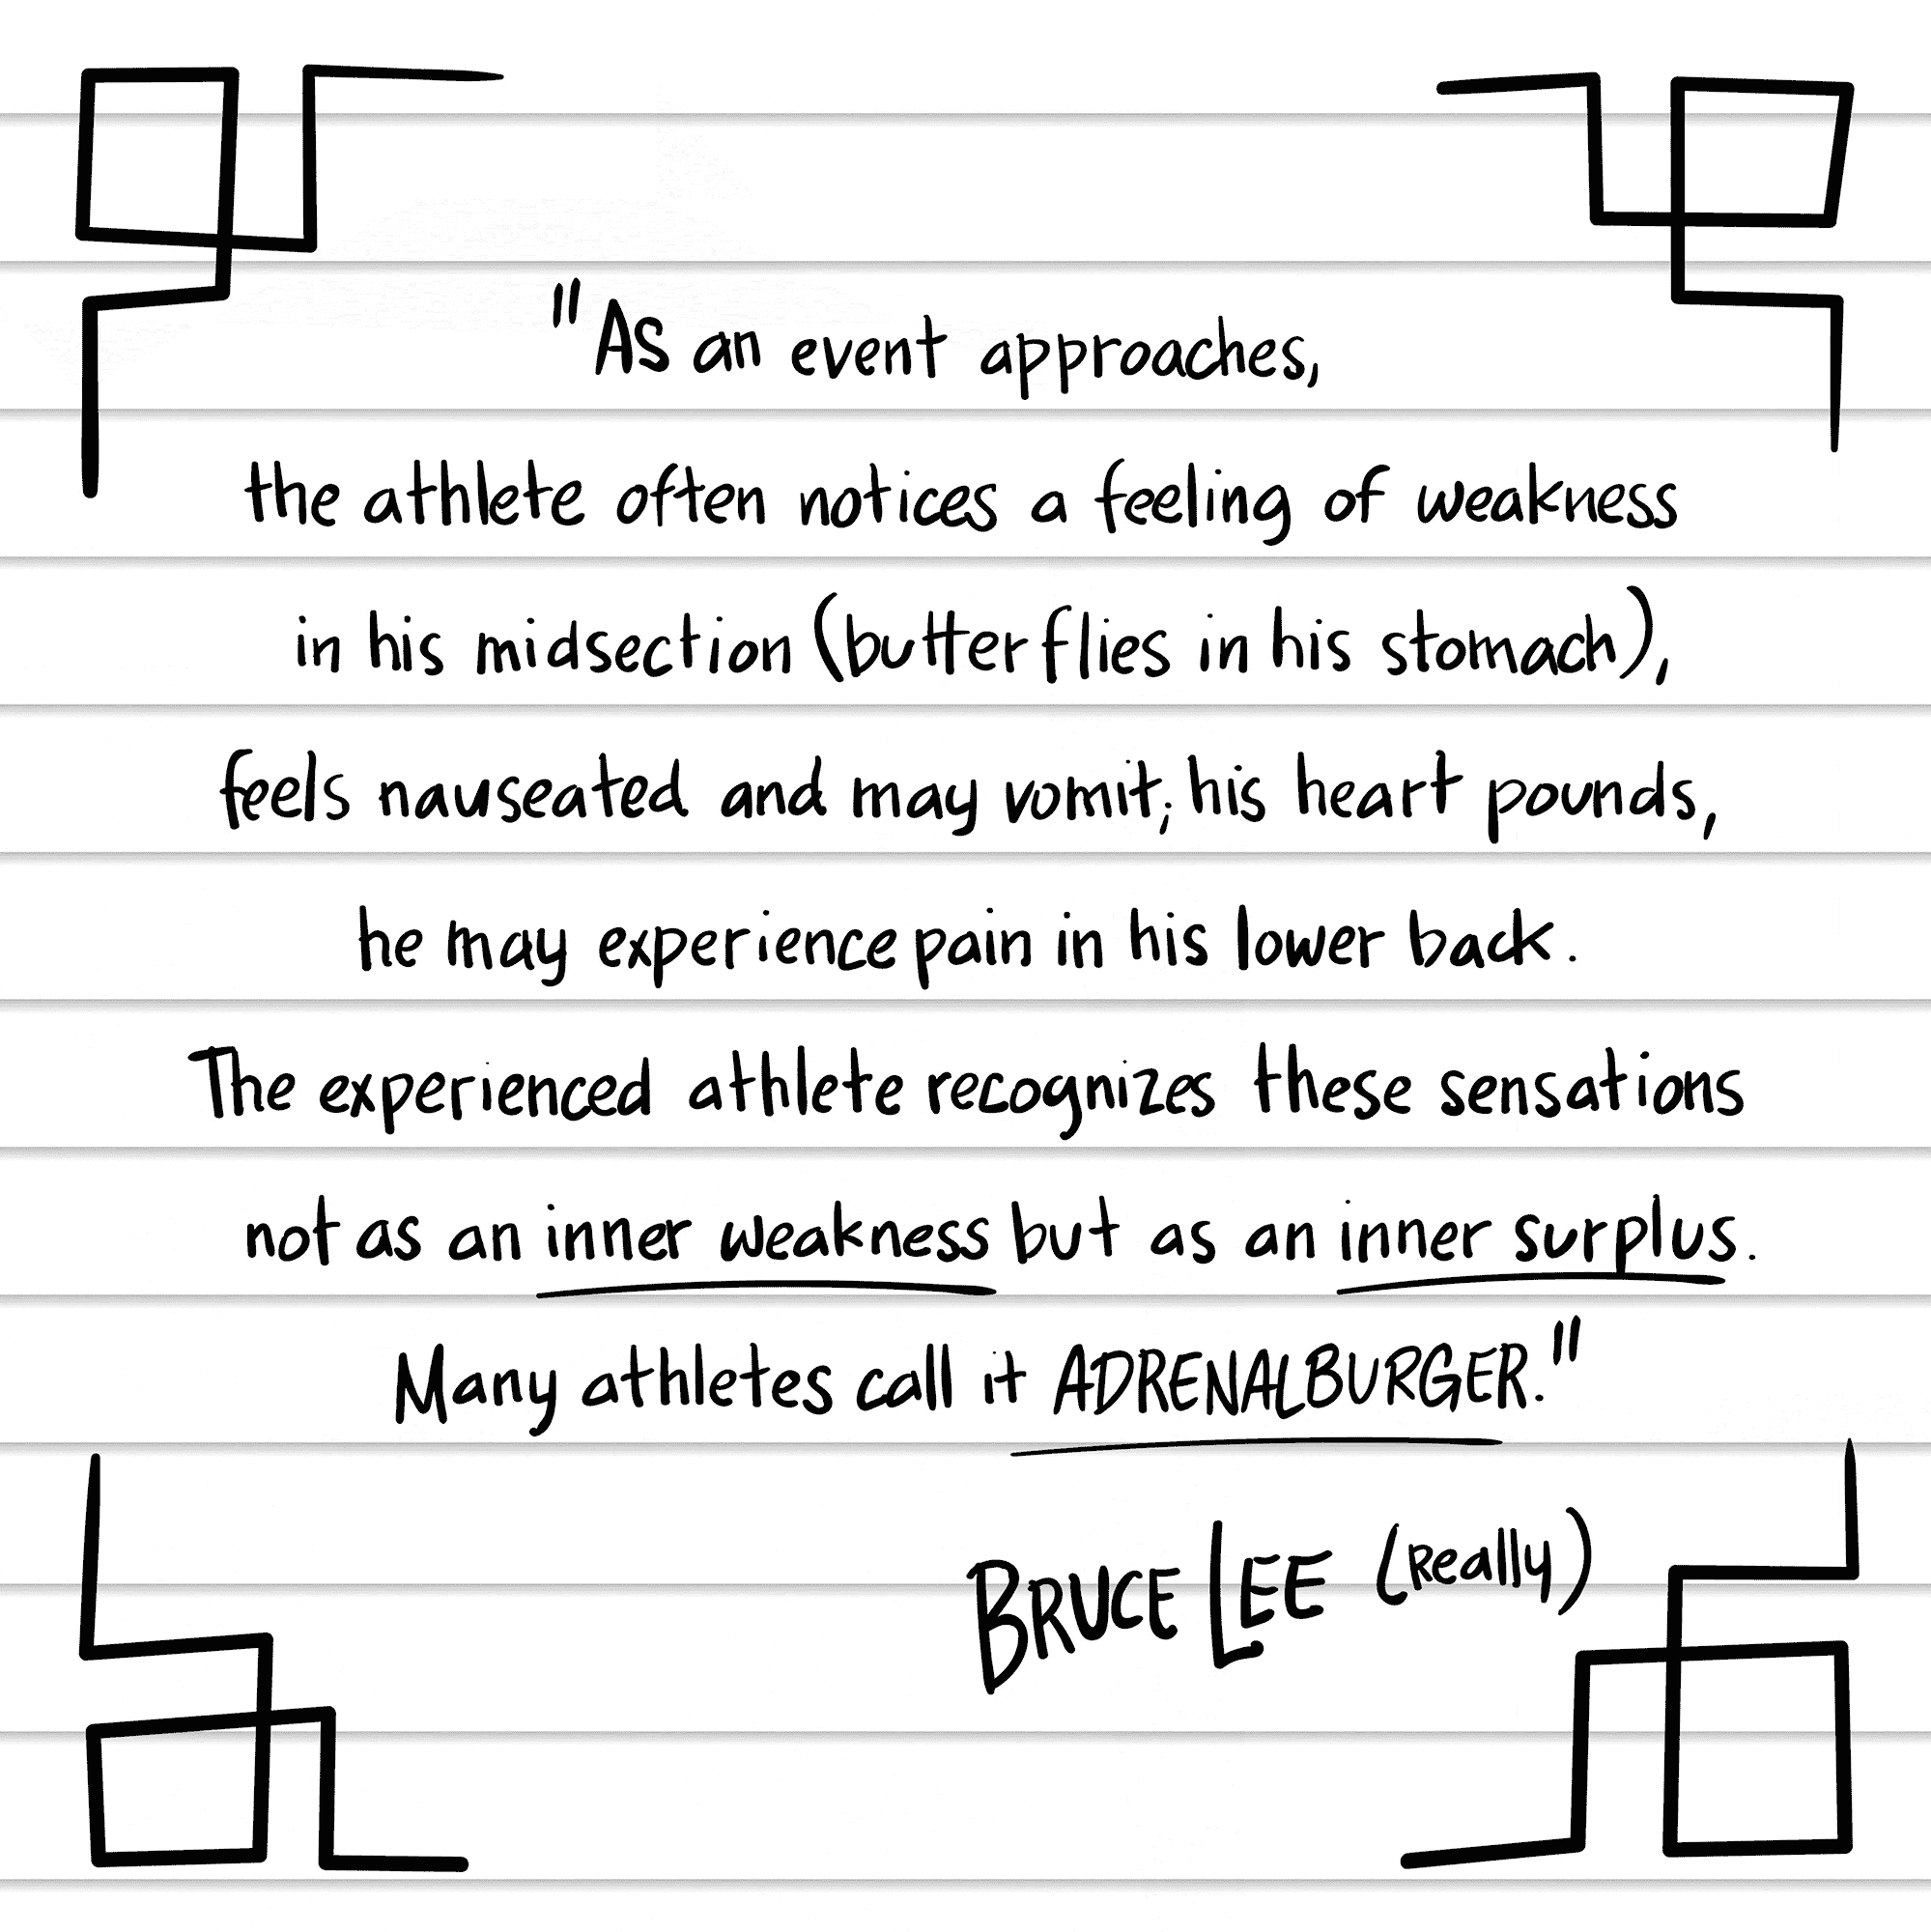 "As an event approaches,
the athlete often notices a feeling of weakness
in his midsection (butterflies in his stomach),
feels nauseated and may vomit; his heart pounds,
he may experience pain in his lower back.
The experienced athlete recognizes these sensations
not as an inner weakness but as an inner surplus.
Many athletes call it ADRENALBURGER."
BRUCE LEE (Really)